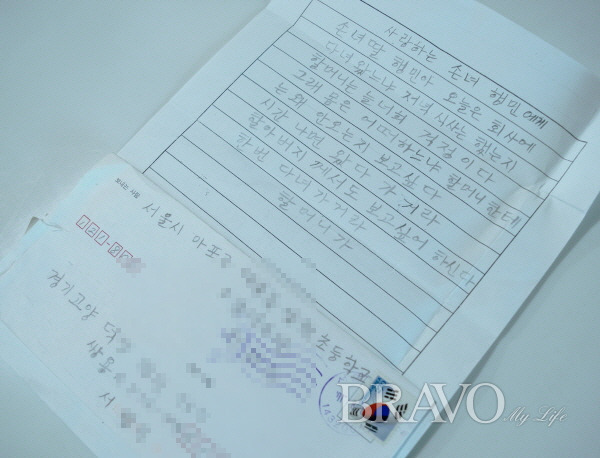 사랑하는 손녀 행민에게
손녀딸 행민아 오늘은 회사에
다녀왔느냐 저녁 식사는 했는지
할머니는 늘 너희 걱정이다
그래 몸은 어떠하느냐 할머니 한테
는 왜 안오는지 보고싶다
시간 나면 왔다 가거라
할아버지 께서도 보고싶어 하신다
한번 다녀가거라
할머니가
보내는 사람
서울시 마포구
초등학교
경기고양 덕
쌍용
서
BRAVO
My Life